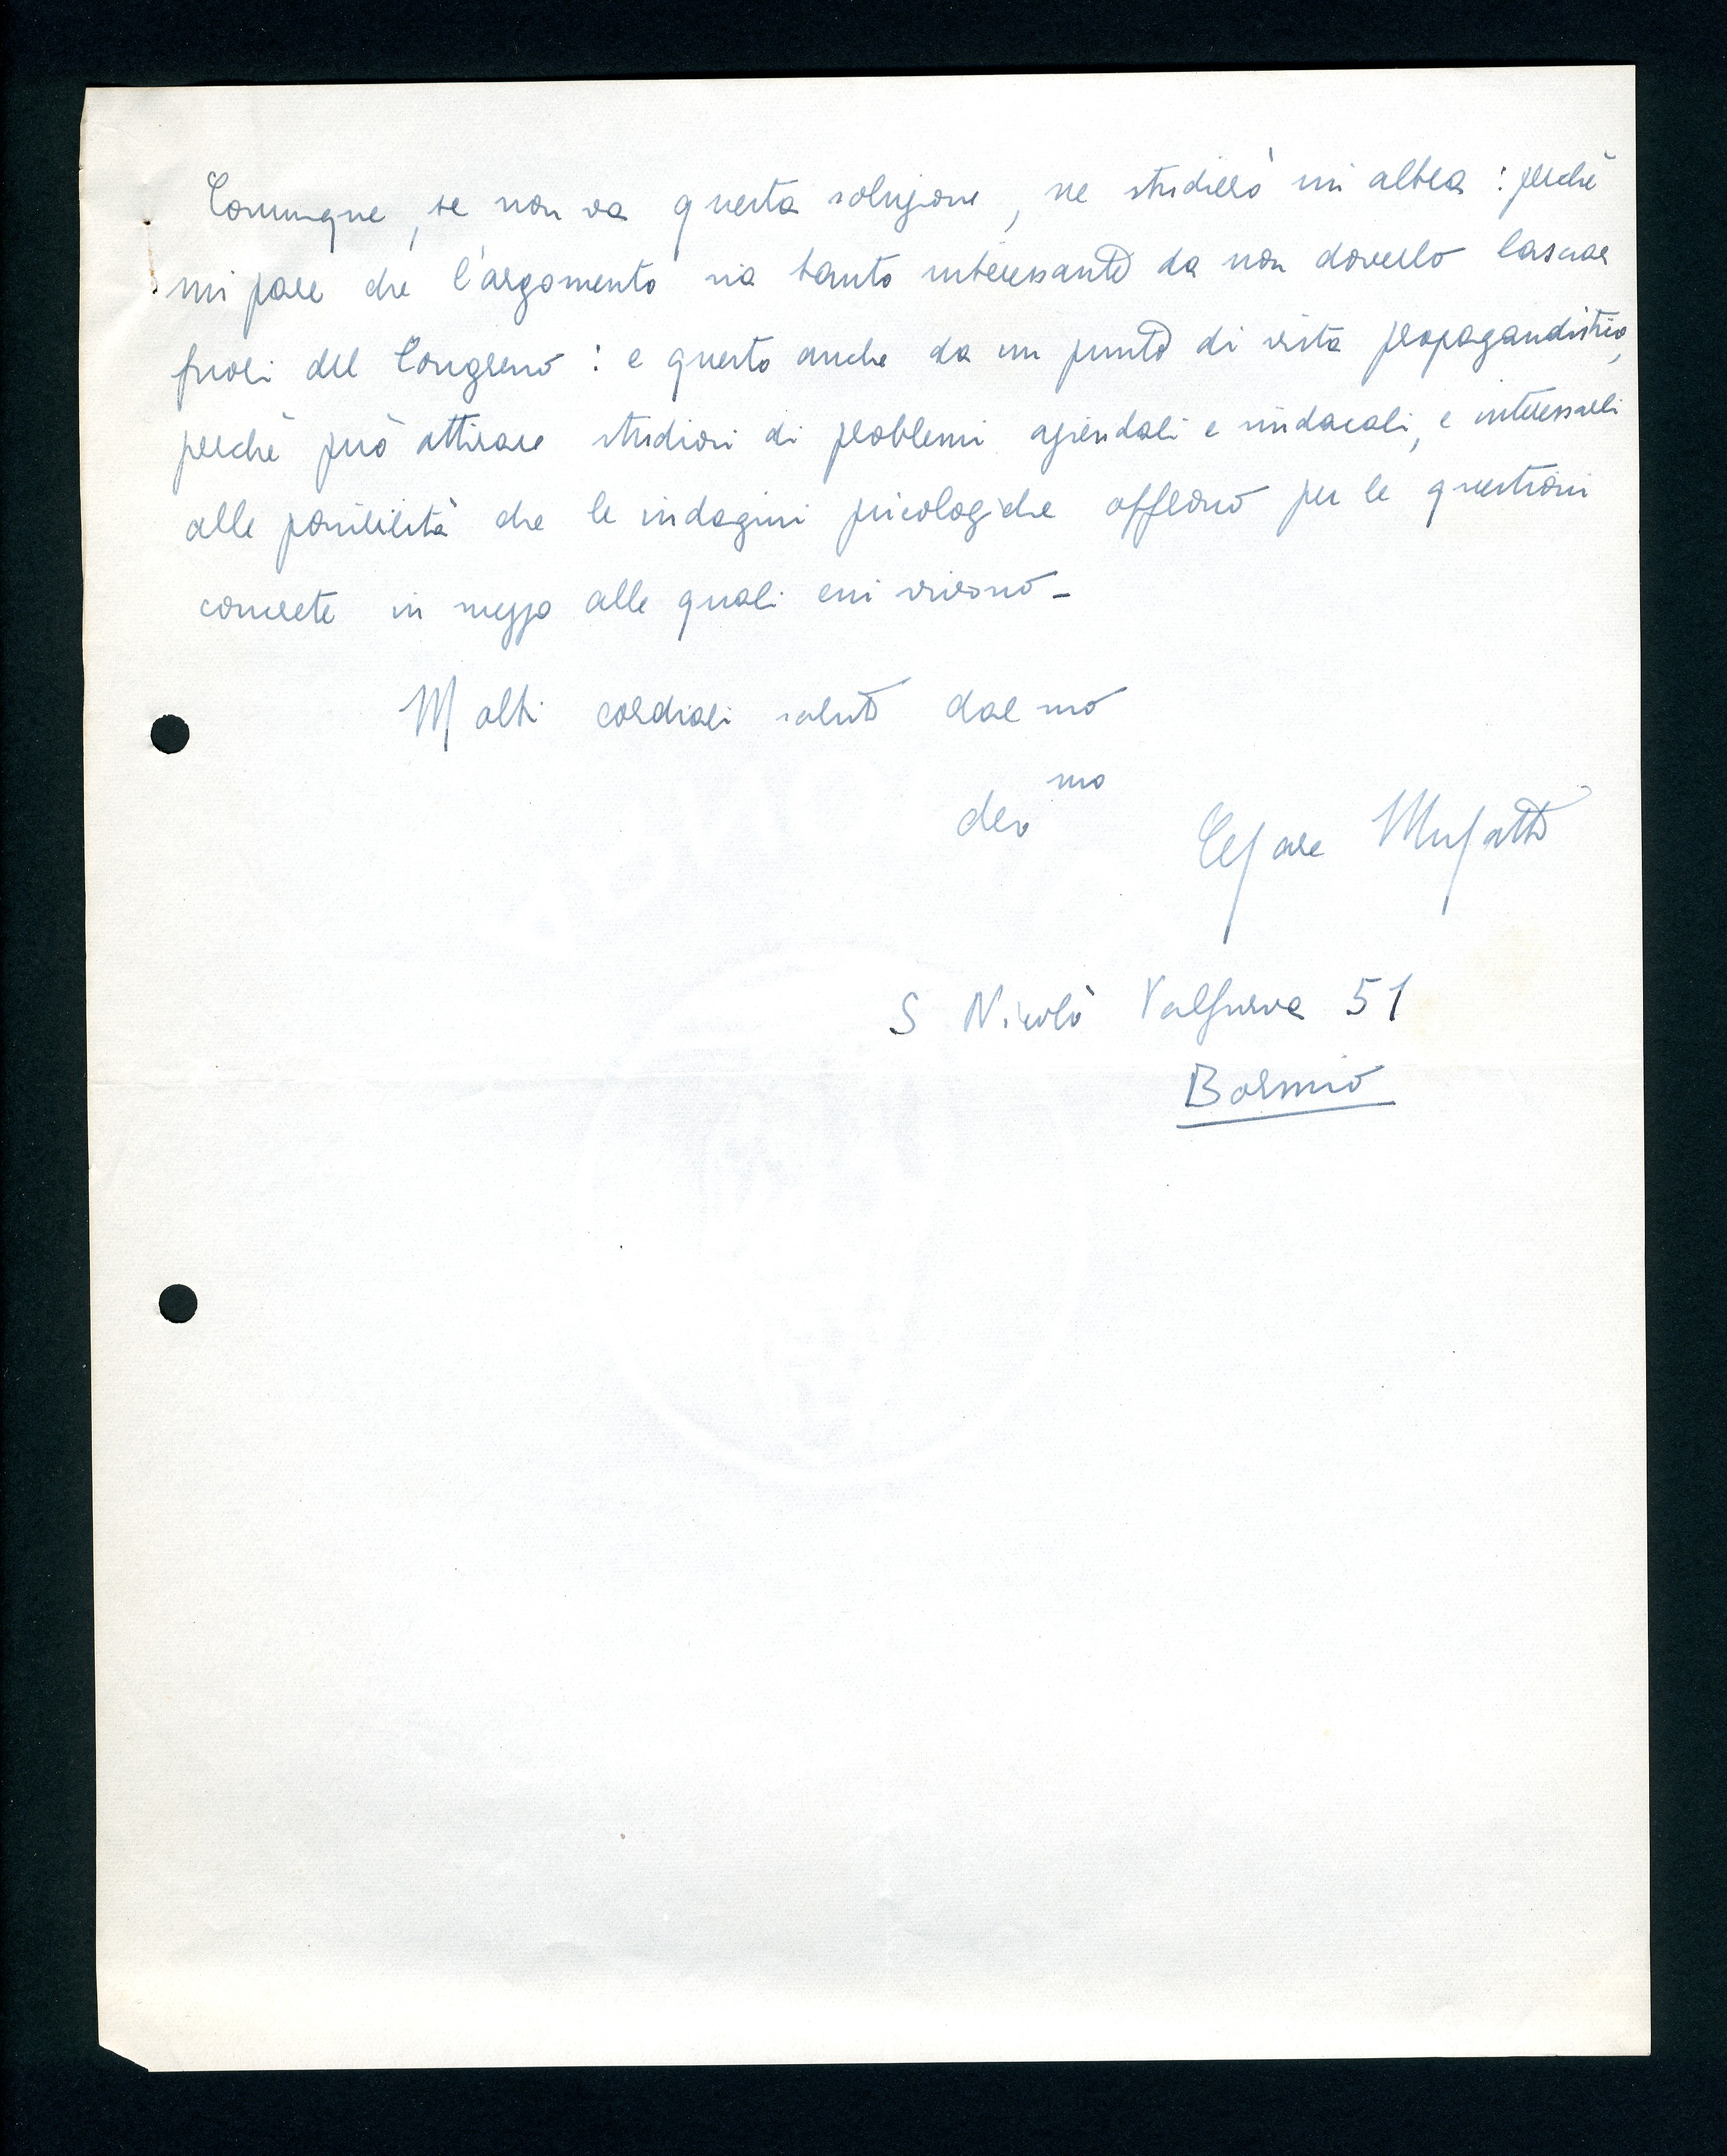 Comunque, se non va questa soluzione, ne studierò un'altra: perchè
mi pare che l'argomento sia tanto interessante da non doverlo lasciare
fuori del Congresso: e questo anche da un punto di vista propagandistico,
perchè può attirare studiosi di problemi aziendali e sindacali, e interessarli
alle possibilità che le indagini psicologiche offrono per le questioni
concrete in mezzo alle quali essi vivono_
Molti cordiali saluti dal suo
dev mo
Cesare Musatti
S Nicolò Valfurva 51
Bormio